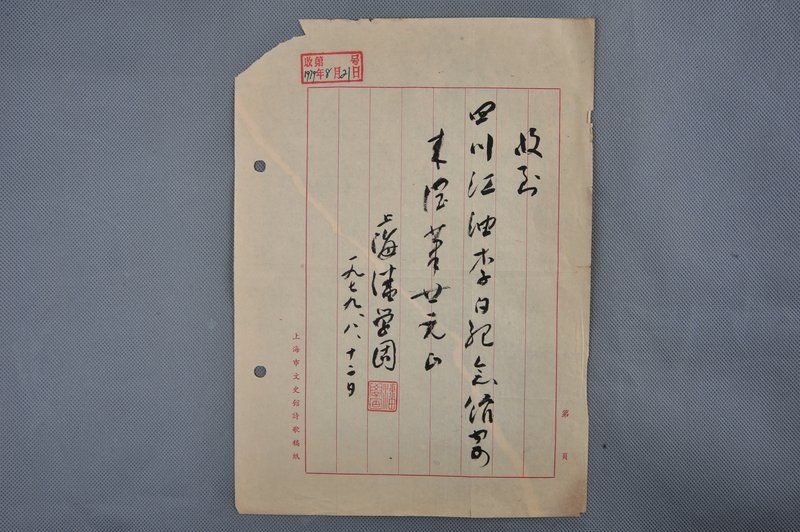 第 号
1979年8月21日
第 頁
收到
四川江油李白纪念馆寄
来润笔廿元正
上海潘学固
一九七九、八、十二日
上海市文史館詩歌稿紙